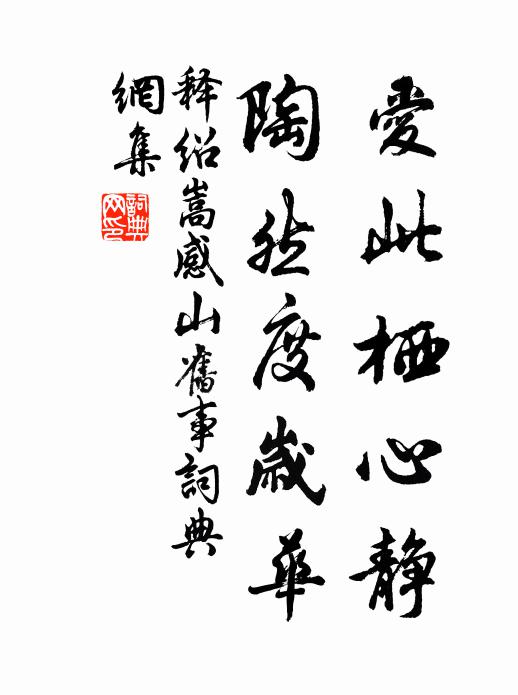 愛此栖心静
陶然度歲華
释紹嵩感山舊事詞典
網集
詞典
网印